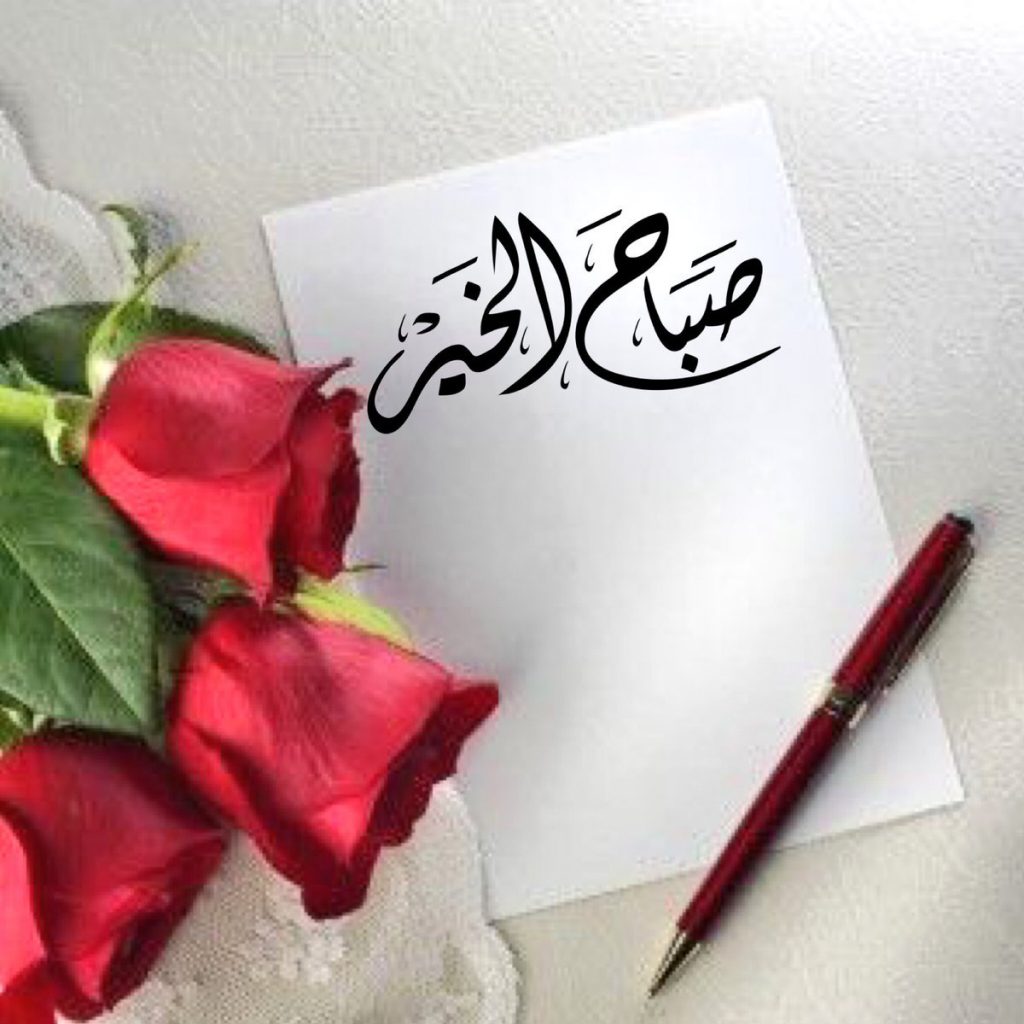 صَبَاح الخَيْر